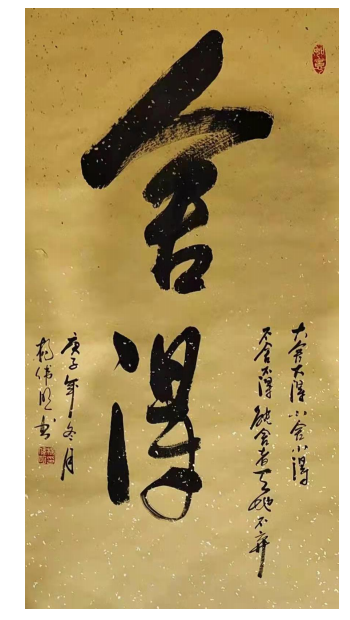 舍得
大舍大得小舍小得
不舍不得能舍者天地不弃
庚子年冬月
书